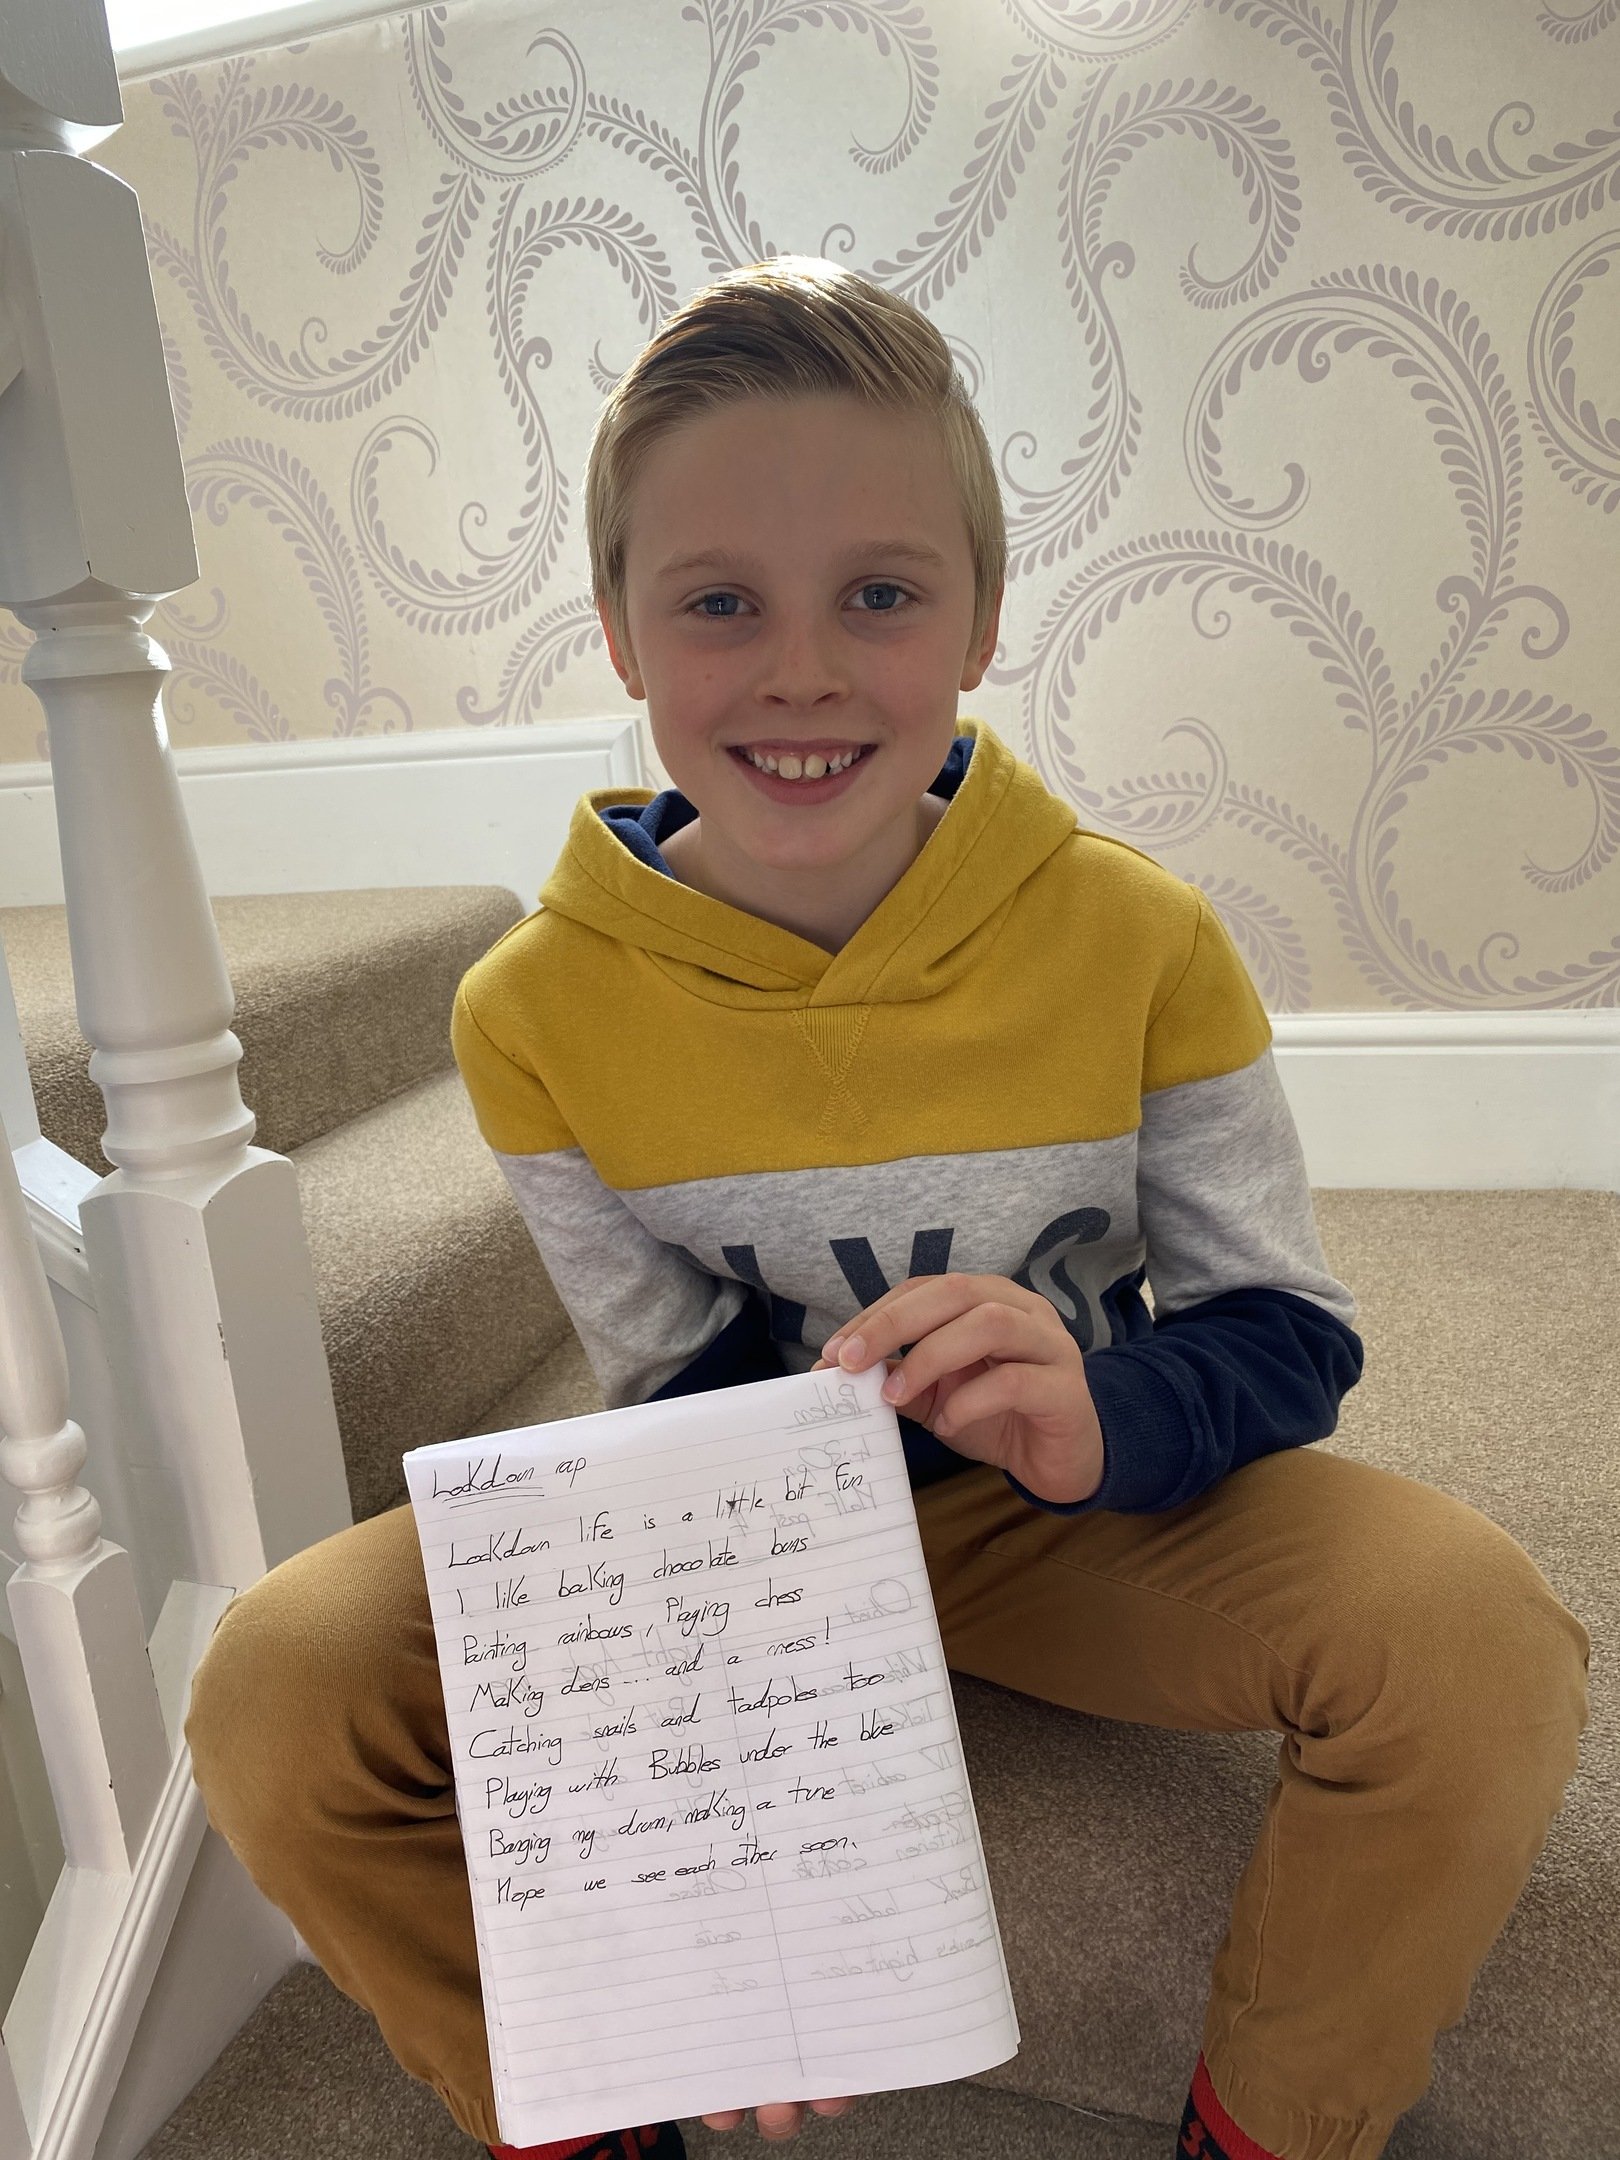 LVG
Lockdown rap
Lockdown life is a little bit fun
I like baking chocolate buns
Painting rainbows, Playing chess
Making dens ... and a mess!
Catching snails and tadpoles too
Playing with Bubbles under the blue
Banging my drum, making a tune
Hope we see each other soon.